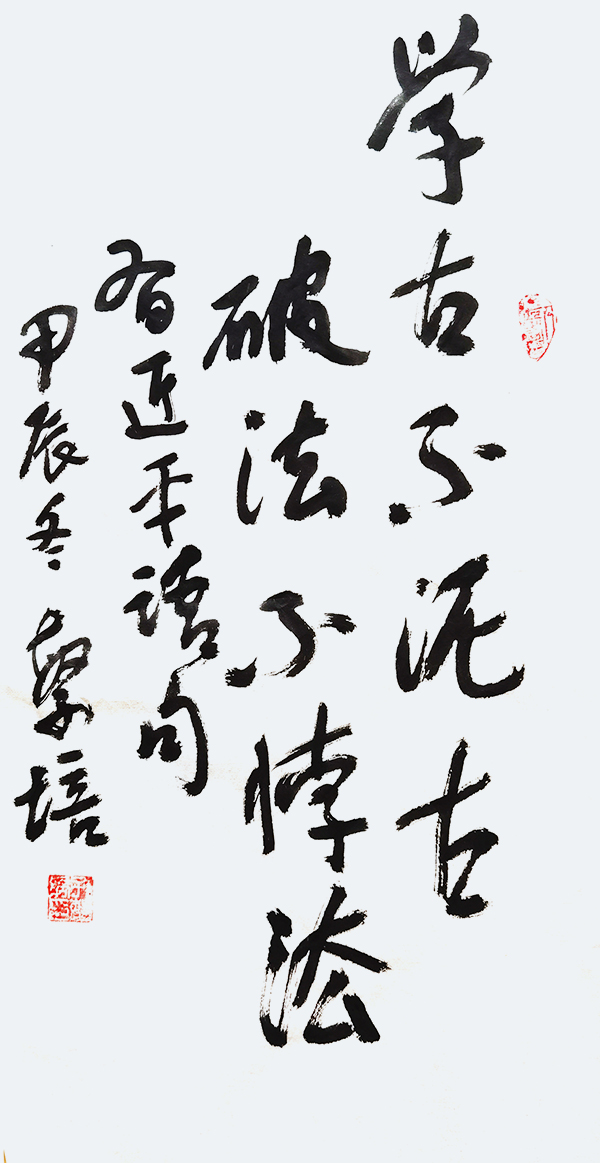 学古不泥古
破法不悖法
習近平语句
甲辰冬 培